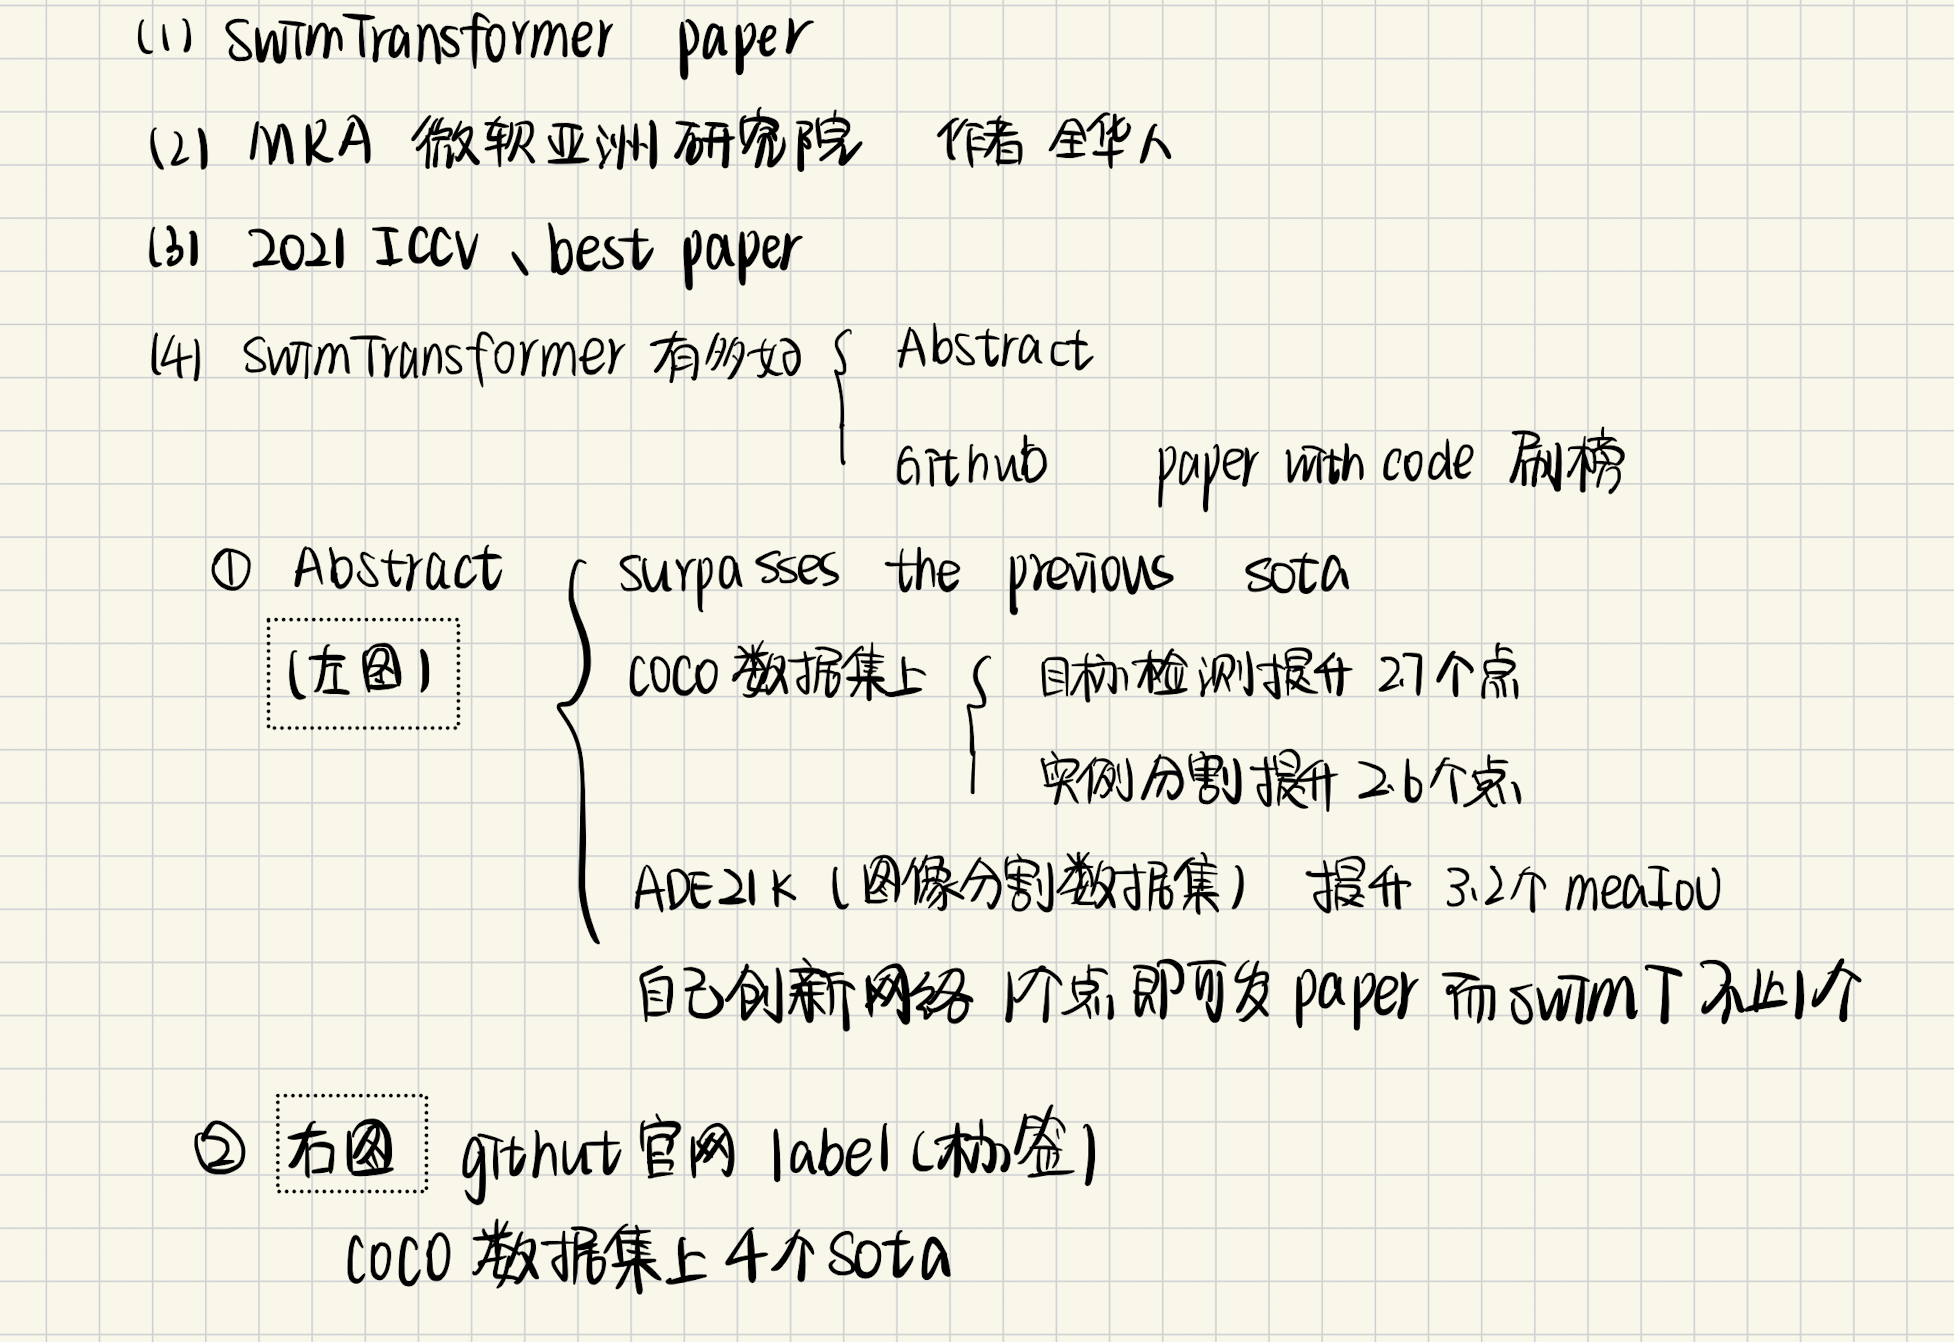 (1) SwimTransformer paper
(2) MRA 微软亚洲研究院 作者 全华人
(3) 2021 ICCV、best paper
(4) SwimTransformer 有多好 { Abstract
Github paper with code 刷榜
① Abstract { surpasses the previous sota
(左图)
COCO 数据集上 { 目标检测提升 2.7个点
实例分割提升 2.6个点
ADE21K (图像分割数据集) 提升 3.2个 meaIoU
自己创新网络 1个点即可发 paper 而swimT 不止1个
② 右图 githut 官网 label (标签)
COCO 数据集上 4个 Sota